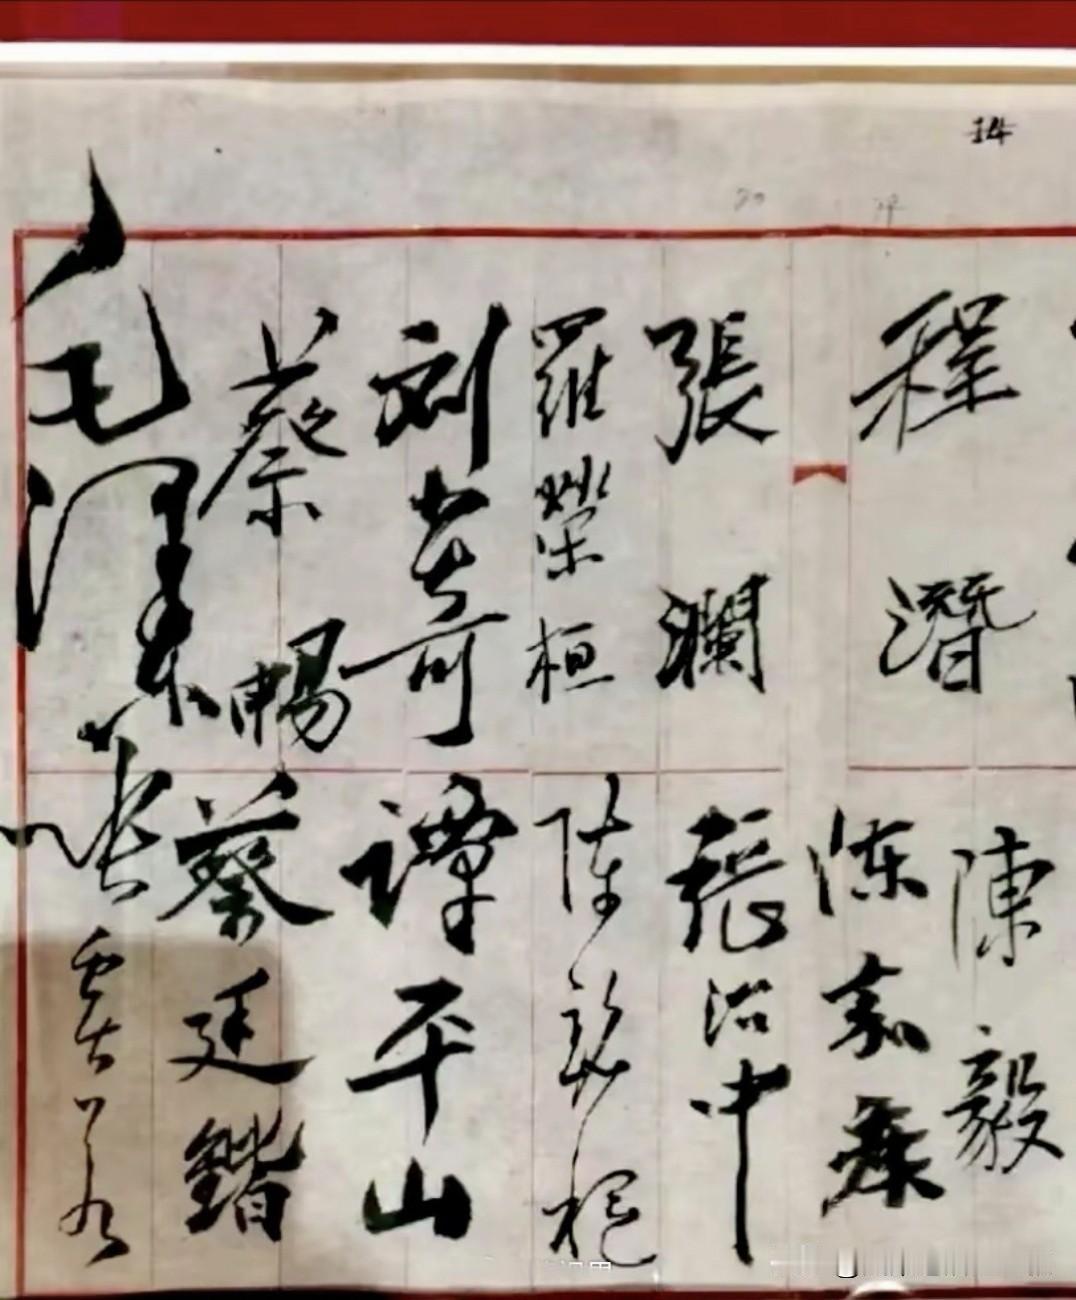 14
程潛
張瀾
羅榮桓
刘少奇
蔡暢
毛澤東
陳毅
陈嘉庚
張治中
譚平山
蔡廷鍇